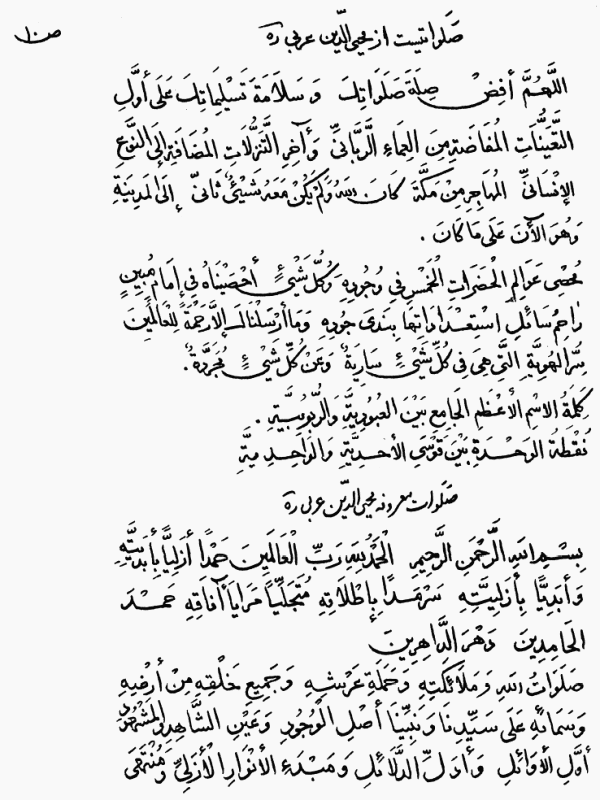 ص ١٠
صَلَواتیست از محیی الدّین عربی ره
اللَّهُمَّ أَفِضْ صِلَةَ صَلَوَاتِكَ وَسَلَامَةَ تَسْلِيمَاتِكَ عَلَى أَوَّلِ
التَّعَيُّنَاتِ المُفَاضَةِ مِنَ العِمَاءِ الرَّبَّانِيِّ وَآخِرِ التَّنَزُّلَاتِ المُضَافَةِ إِلَى النَّوْعِ
الإِنْسَانِيِّ المُهَاجِرِ مِنْ مَكَّةَ كَانَ اللهُ وَلَمْ يَكُنْ مَعَهُ شَيْئٌ ثَانِيٌّ إِلَى المَدِينَةِ
وَهُوَ الآنَ عَلَى مَا كَانَ .
مُحْصِي عَوَالِمِ الْحَضَرَاتِ الْخَمْسِ فِي وُجُودِهِ وَكُلَّ شَيْئٍ أَحْصَيْنَاهُ فِي إِمَامٍ مُبِينٍ
رَاحِمُ سَائِلِ اسْتِعْدَادَاتِهَا بِنَدَى جُودِهِ وَمَا أَرْسَلْنَاكَ إِلَّا رَحْمَةً لِلْعَالَمِينَ
سِرُّ الهُوِيَّةِ الَّتِي هِيَ فِي كُلِّ شَيْئٍ سَارِيَةٌ وَعَنْ كُلِّ شَيْئٍ مُجَرَّدَةٌ .
كَلِمَةُ الاِسْمِ الأَعْظَمِ الجَامِعِ بَيْنَ العُبُودِيَّةِ وَالرُّبُوبِيَّةِ .
نُقْطَةُ الوَحْدَةِ بَيْنَ قَوْسَيِ الأَحَدِيَّةِ وَالوَاحِدِيَّةِ
صَلَوات معروفه محیی الدّین عربی ره
بِسْمِ اللهِ الرَّحْمَنِ الرَّحِيمِ الْحَمْدُ لِلَّهِ رَبِّ الْعَالَمِينَ حَمْدًا أَزَلِيًّا بِأَبَدِيَّتِهِ
وَأَبَدِيًّا بِأَزَلِيَّتِهِ سَرْمَدًا بِإِطْلَاقِهِ مُتَجَلِّيًا مَرَايَا آفَاقِهِ حَمْدَ
الحَامِدِينَ دَهْرَ الدَّاهِرِينَ
صَلَوَاتُ اللهِ وَمَلَائِكَتِهِ وَحَمَلَةِ عَرْشِهِ وَجَمِيعِ خَلْقِهِ مِنْ أَرْضِهِ
وَسَمَائِهِ عَلَى سَيِّدِنَا وَنَبِيِّنَا أَصْلِ الْوُجُودِ وَعَيْنِ الشَّاهِدِ وَالمَشْهُودِ
أَوَّلِ الأَوَائِلِ وَأَدَلِّ الدَّلَائِلِ وَمَبْدَءِ الأَنْوَارِ الْأَزَلِيِّ وَمُنْتَهَى